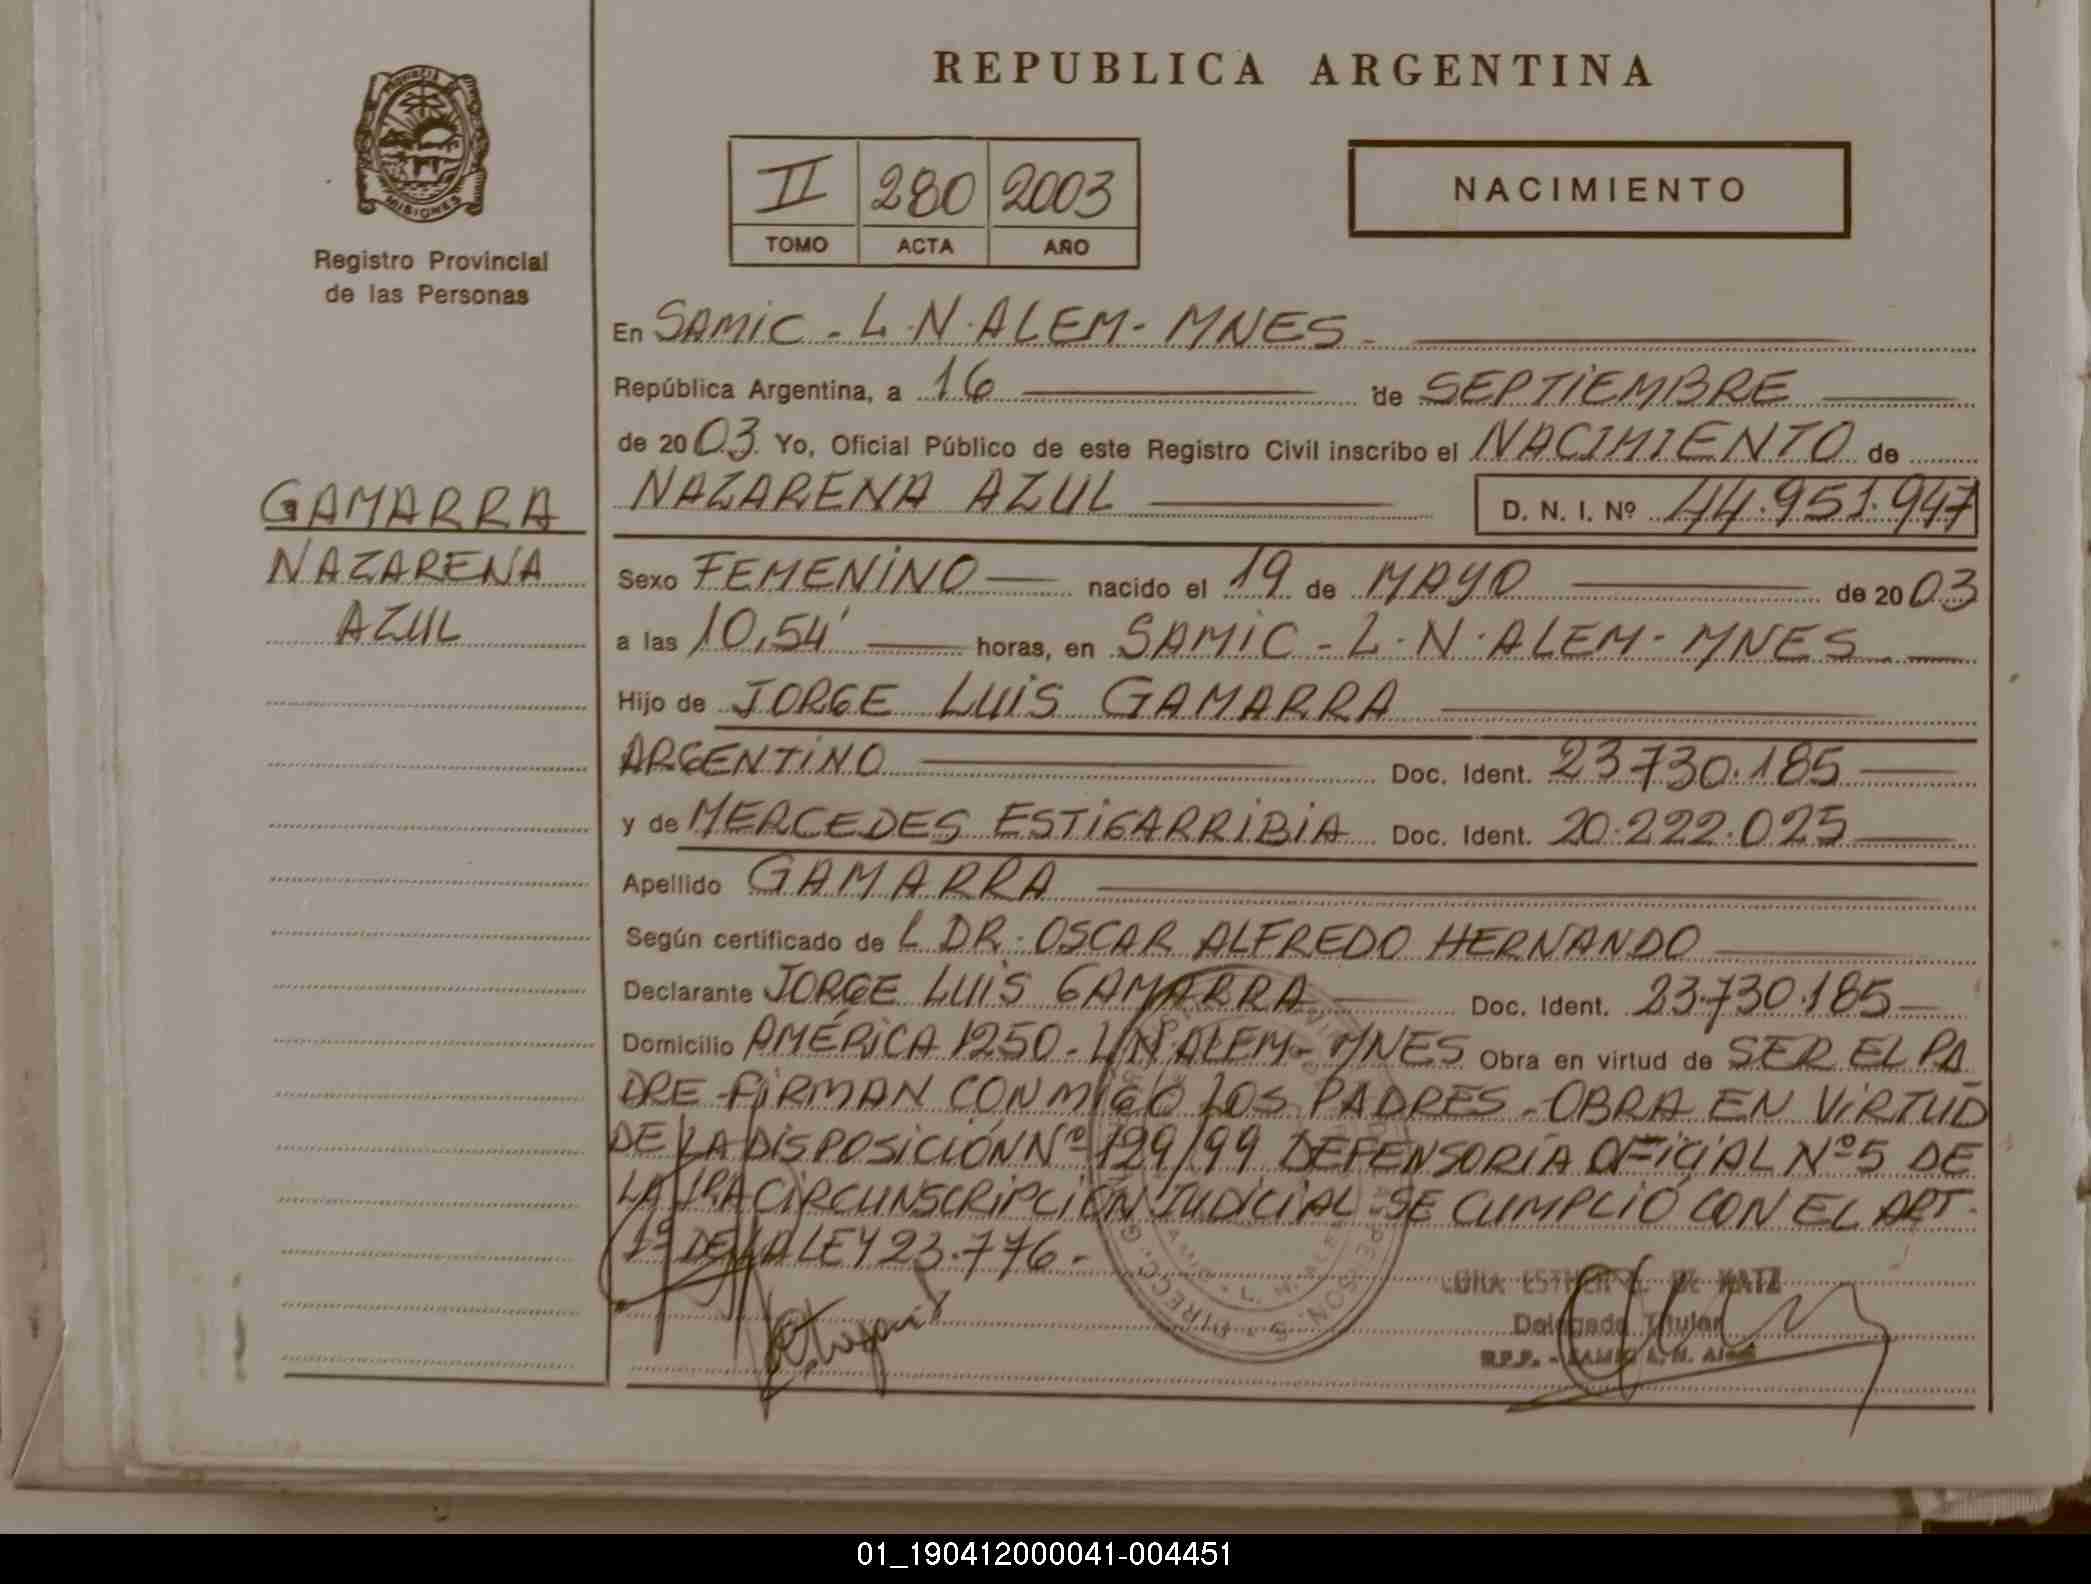 REPUBLICA ARGENTINA
PROVINCIA DE MISIONES
Registro Provincial
de las Personas
II 280 2003
TOMO ACTA AÑO
NACIMIENTO
En SAMIC - L.N.ALEM - MNES -
República Argentina, a 16 de SEPTIEMBRE
de 2003. Yo, Oficial Público de este Registro Civil inscribo el NACIMIENTO de
NAZARENA AZUL D. N. I. Nº 44.951.947
GAMARRA
NAZARENA
AZUL
Sexo FEMENINO nacido el 19 de MAYO de 2003
a las 10,54' horas, en SAMIC - L.N.ALEM - MNES
Hijo de JORGE LUIS GAMARRA
ARGENTINO Doc. Ident. 23.730.185
y de MERCEDES ESTIGARRIBIA Doc. Ident. 20.222.025
Apellido GAMARRA
Según certificado de L DR. OSCAR ALFREDO HERNANDO
Declarante JORGE LUIS GAMARRA Doc. Ident. 23.730.185
Domicilio AMÉRICA 1250 - L.N.ALEM - MNES Obra en virtud de SER EL PA
DRE - FIRMAN CONMIGO LOS PADRES - OBRA EN VIRTUD
DE LA DISPOSICIÓN Nº 129/99 DEFENSORÍA OFICIAL Nº 5 DE
LA 1RA CIRCUNSCRIPCIÓN JUDICIAL SE CUMPLIÓ CON EL ART.
1º DE LA LEY 23.776.-
DE KATZ
Delegada Titular
R.P.P. - SAMIC L. N. Alem
01_190412000041-004451